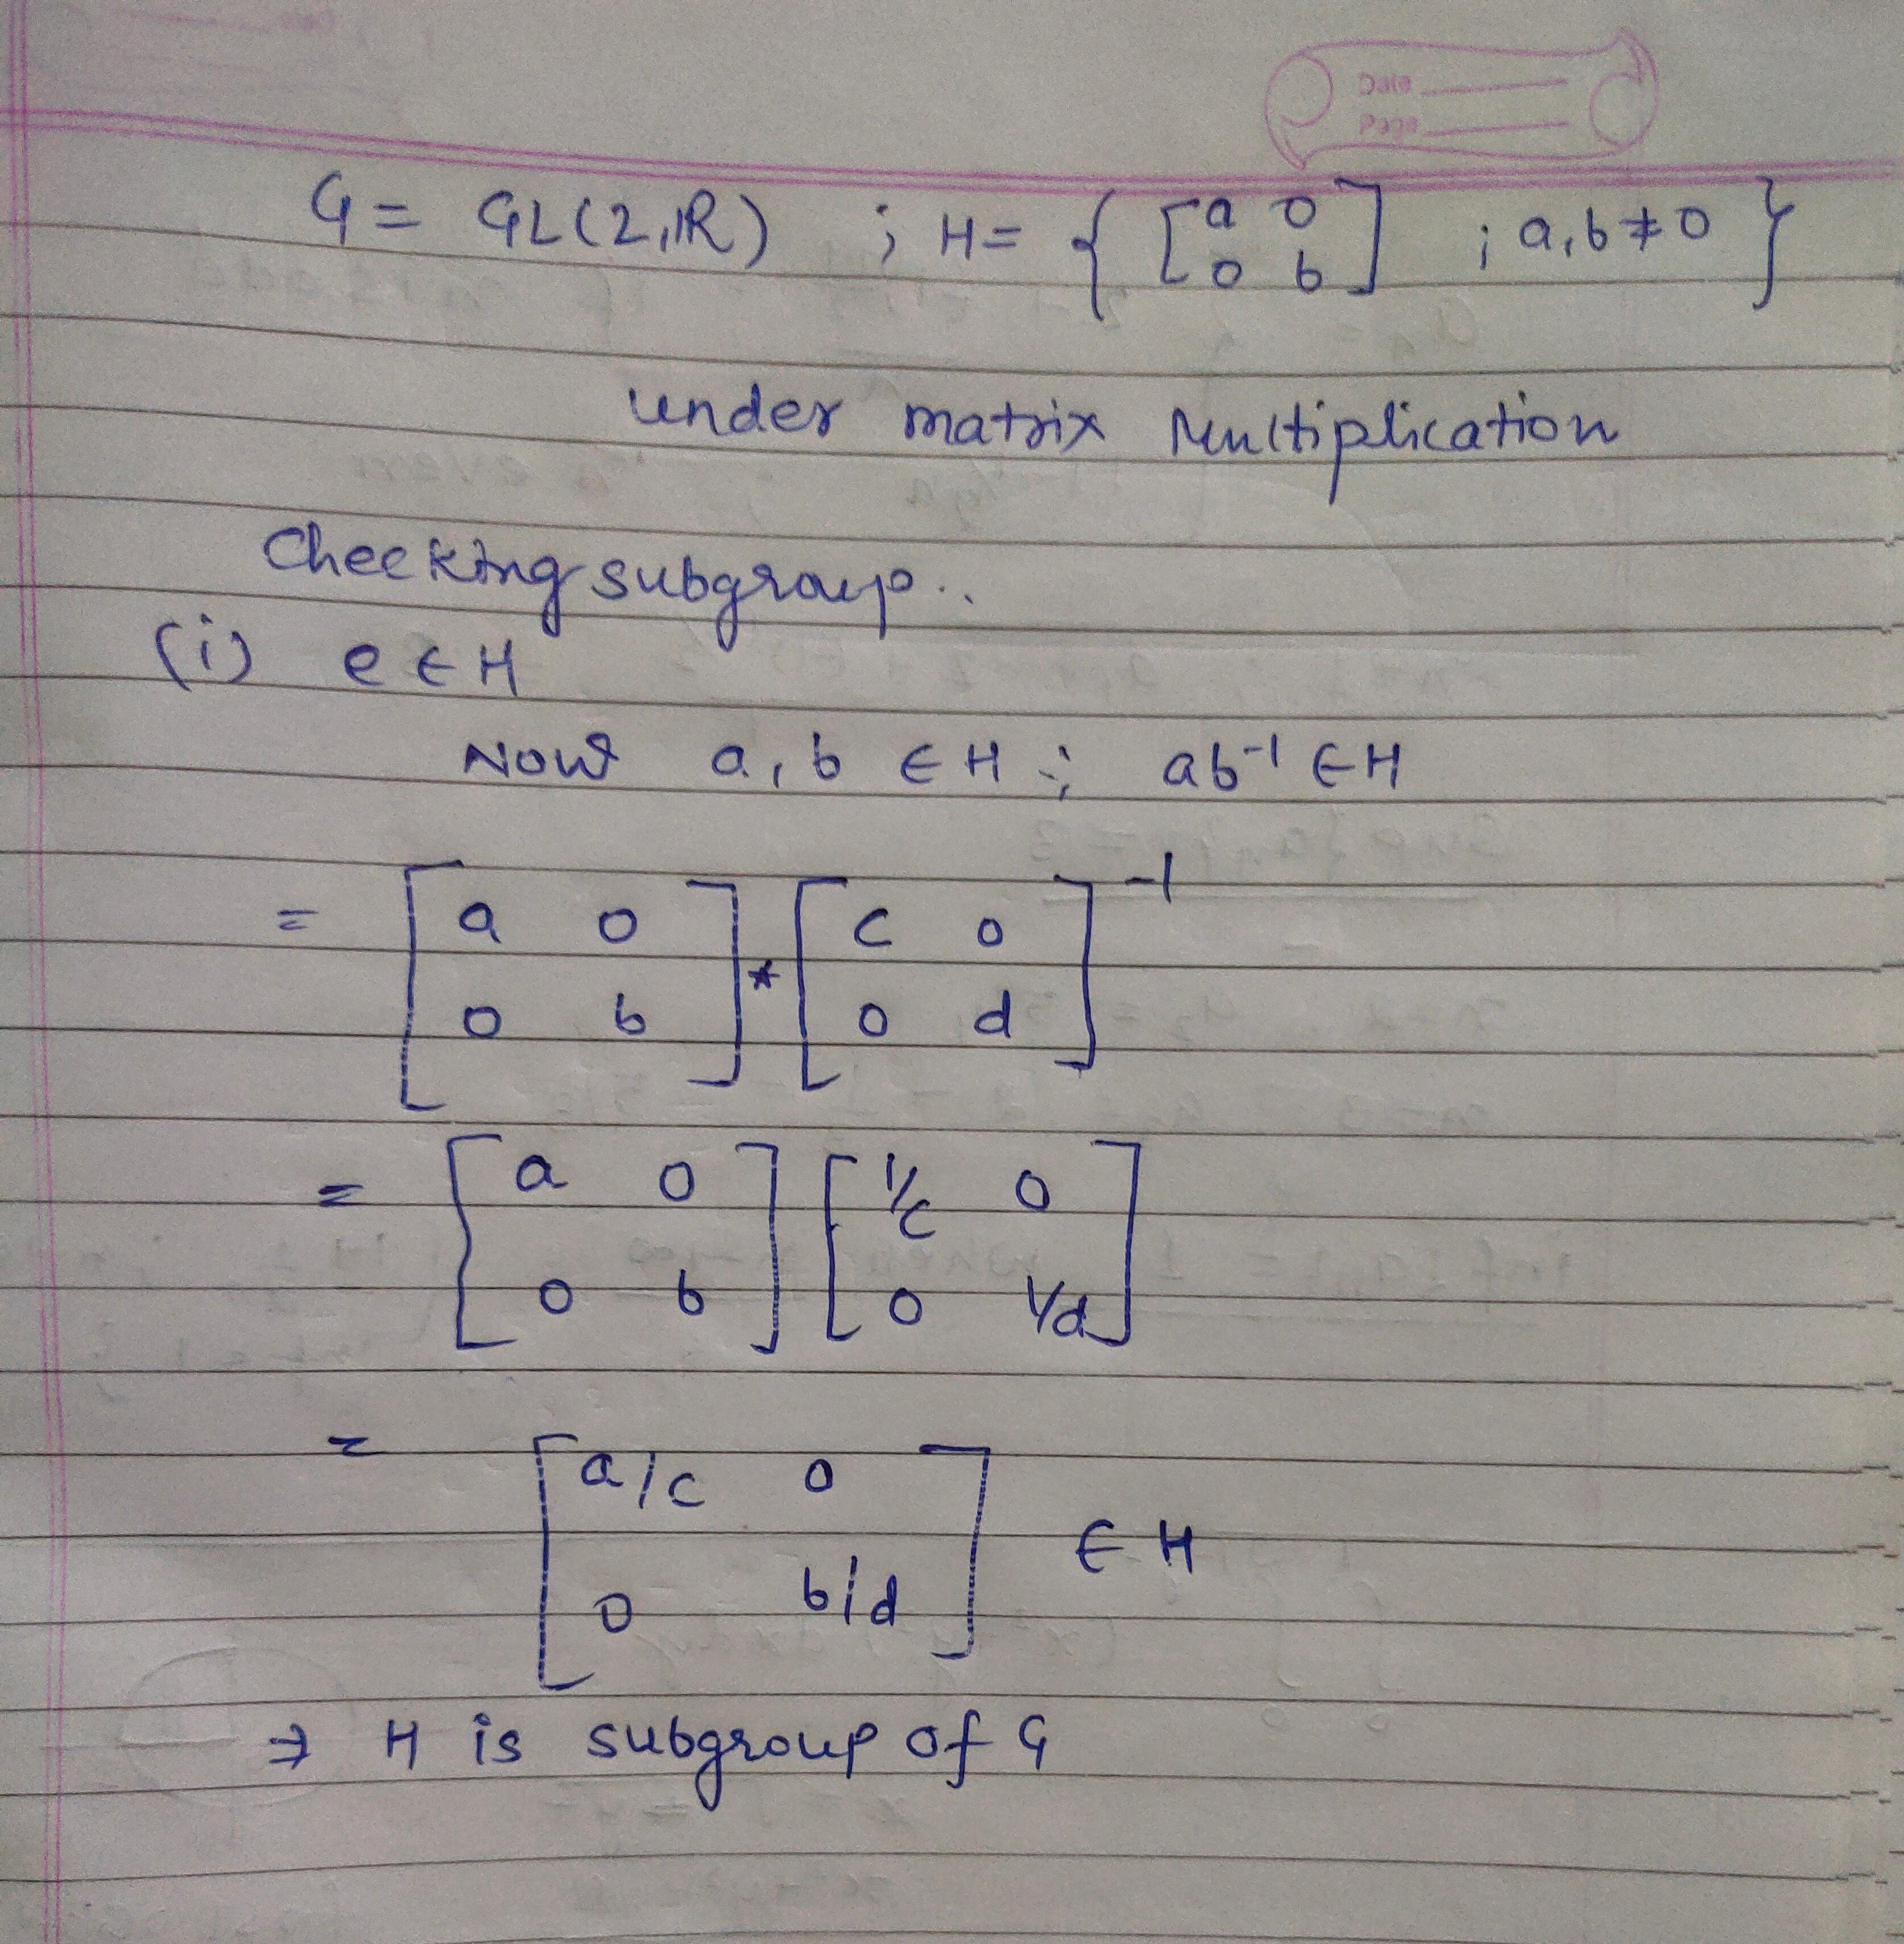 Date
Page
G = GL(2,ℝ) ; H = { [a 0; 0 b] ; a,b ≠ 0 }
under matrix Multiplication
Checking subgroup..
(i) e ∈ H
Now a, b ∈ H ; ab⁻¹ ∈ H
= [a 0; 0 b] * [c 0; 0 d]⁻¹
= [a 0; 0 b] [1/c 0; 0 1/d]
= [a/c 0; 0 b/d] ∈ H
⇒ H is subgroup of G